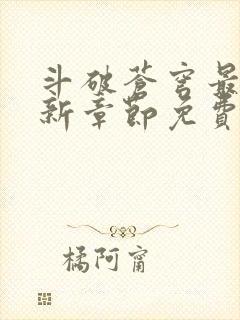 斗破苍穹最
新章节免费
橘阿甯